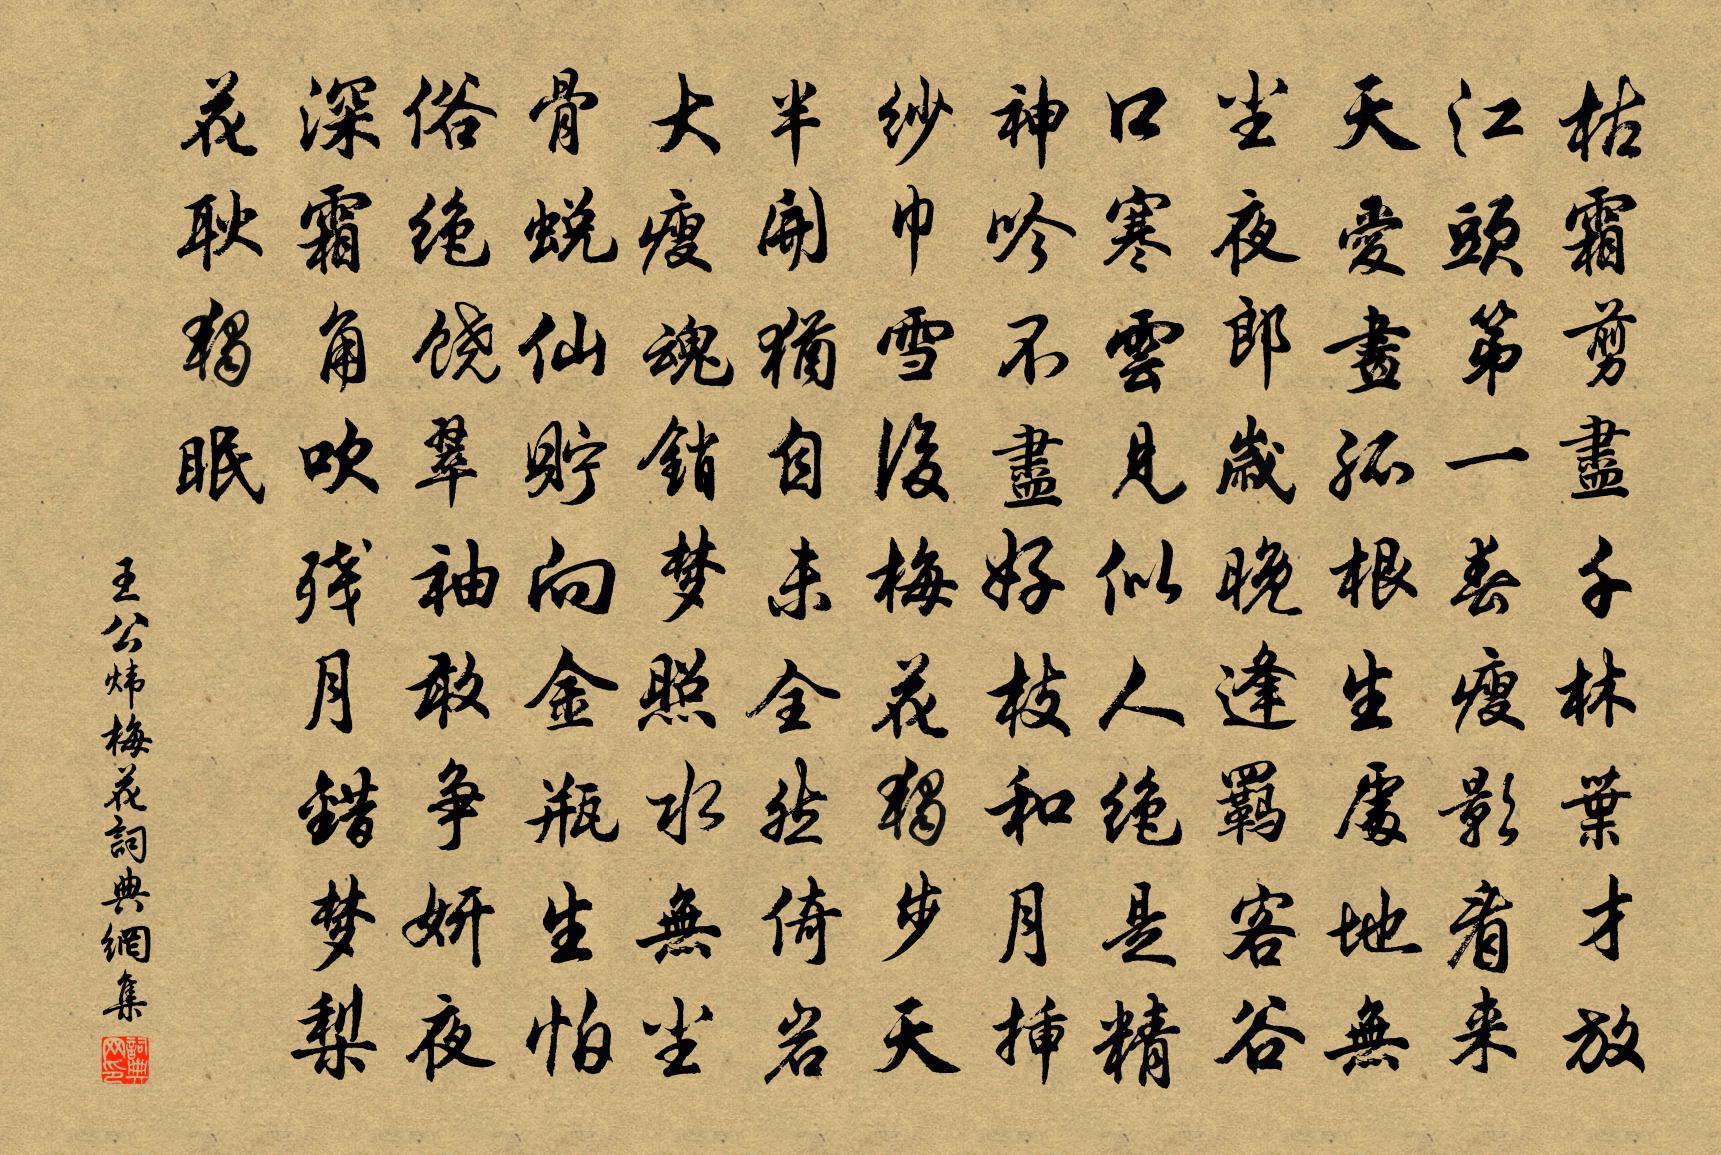 枯霜剪盡千林葉才放
江頭第一春瘦影看来
天愛畫孤根生處地無
尘夜郎歲晚逢羈客谷
口寒雲見似人绝是精
神吟不盡好枝和月挿
纱巾雪後梅花獨步天
半開猶自未全然倚岩
大瘦魂銷梦照水無尘
骨蜕仙貯向金瓶生怕
俗绝饶翠袖敢争妍夜
深霜角吹残月錯梦梨
花耿獨眠
王公炜梅花詞典網集
詞典网印